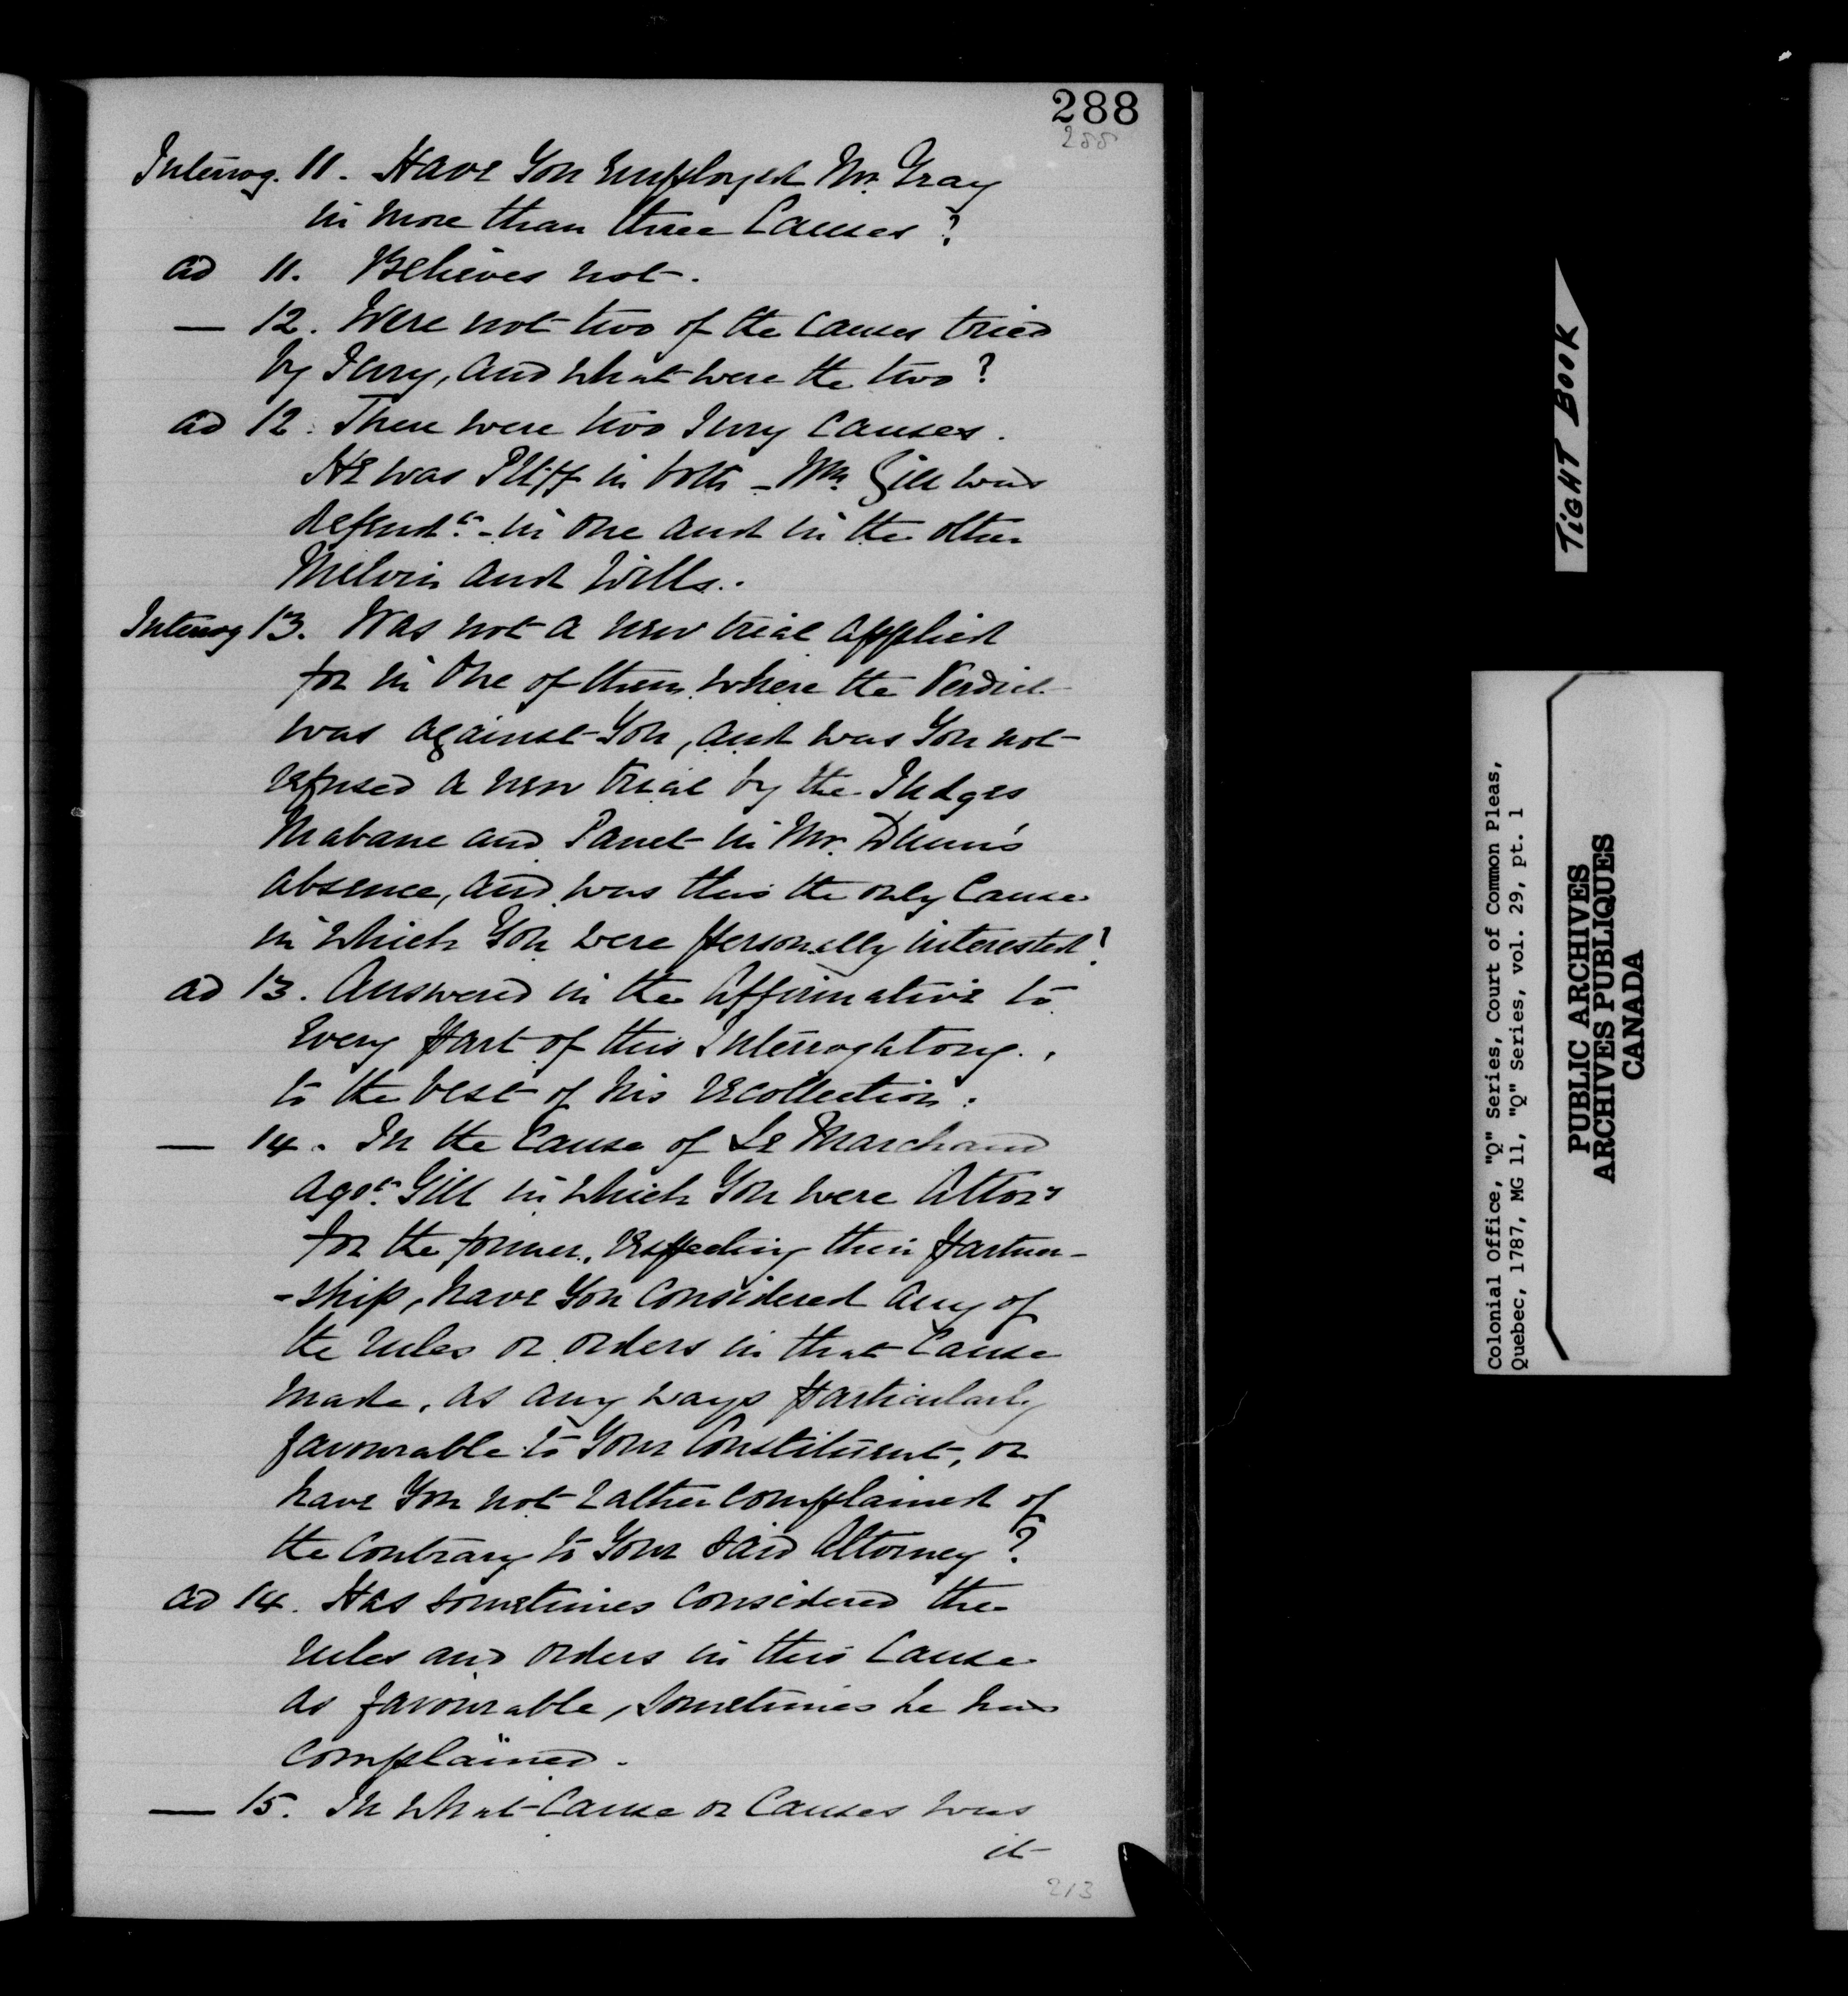 288
288
Interrog. 11. Have You employed Mr. Gray
in more than three Causes?
ad 11. Believes not.
— 12. Were not two of the Causes tried
by Jury, and what were the two?
ad 12. There were two Jury Causes.
He was Pltff in both - Mr. Gill was
defendt. - in one and in the other
Melvin and Wills.
Interrog 13. Was not a new trial applied
for in One of them where the Verdict
was against You, and was You not
refused a new trial by the Judges
Mabane and Panet in Mr. Dunn's
absence, and was this the only Cause
in which You were personally interested?
ad 13. Answered in the Affirmative to
every part of this Interrogatory.,
to the best of his recollection.
— 14. In the Cause of Le Marchand
agst. Gill in which You were Attory
for the former, respecting their partner-
-ship, have You Considered any of
the rules or orders in that Cause
made, as any ways particularly
favourable to Your Constituent, or
have You not rather complained of
the Contrary to Your said Attorney?
ad 14. Has sometimes Considered the
rules and orders in this Cause
as favourable, sometimes he has
complained.
— 15. In what Cause or Causes was
it
213
TIGHT BOOK
Colonial Office, "Q" Series, Court of Common Pleas,
Quebec, 1787, MG 11, "Q" Series, vol. 29, pt. 1
PUBLIC ARCHIVES
ARCHIVES PUBLIQUES
CANADA